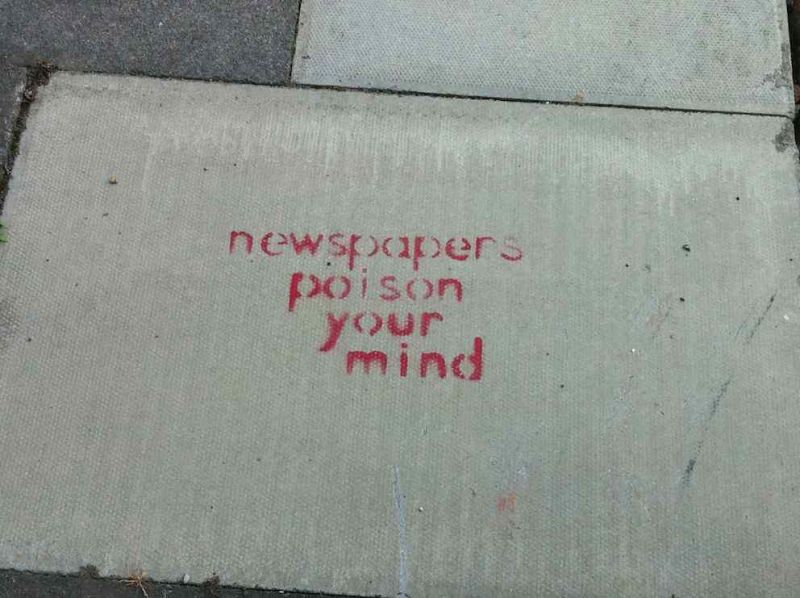 newspapers
poison
your
mind